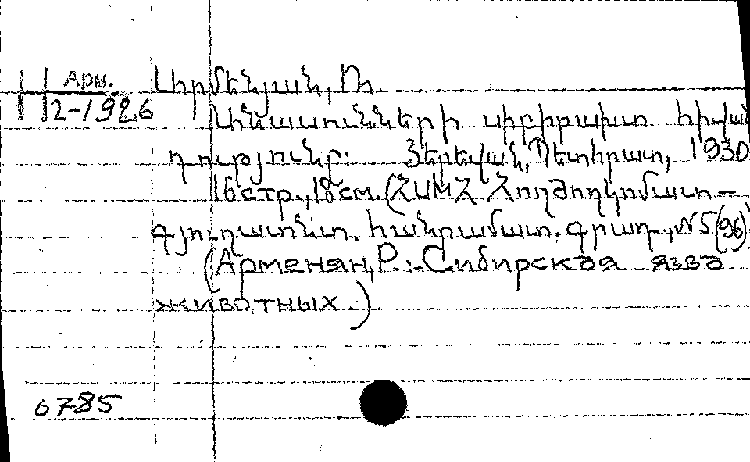 Арм.
2-1926
Արմենյան, Ռ.
Անասունների սիբիրախտ հիվան
դությունը: Յերևան, Պետհրատ, 1930
16 стр., 18 см. (ՀՍԽՀ Հողժողկոմատ –
գյուղատնտ. հանրամատ. գրադ., № 5 (96)
(Арменян, Р.:. Сибирская язва
животных.)
6785